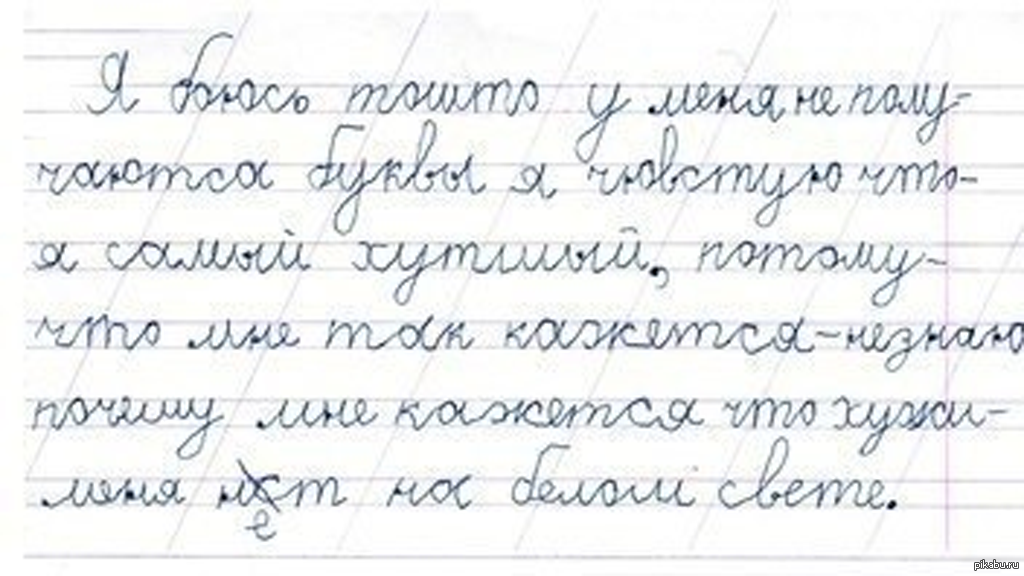 Я боюсь тошто у меня не полу-
чаютса буквы я чювстую что-
я самый хутшый, потому-
что мне так кажется-незнаю
почему мне кажется что хужи-
меня нет на белом свете.
pikabu.ru